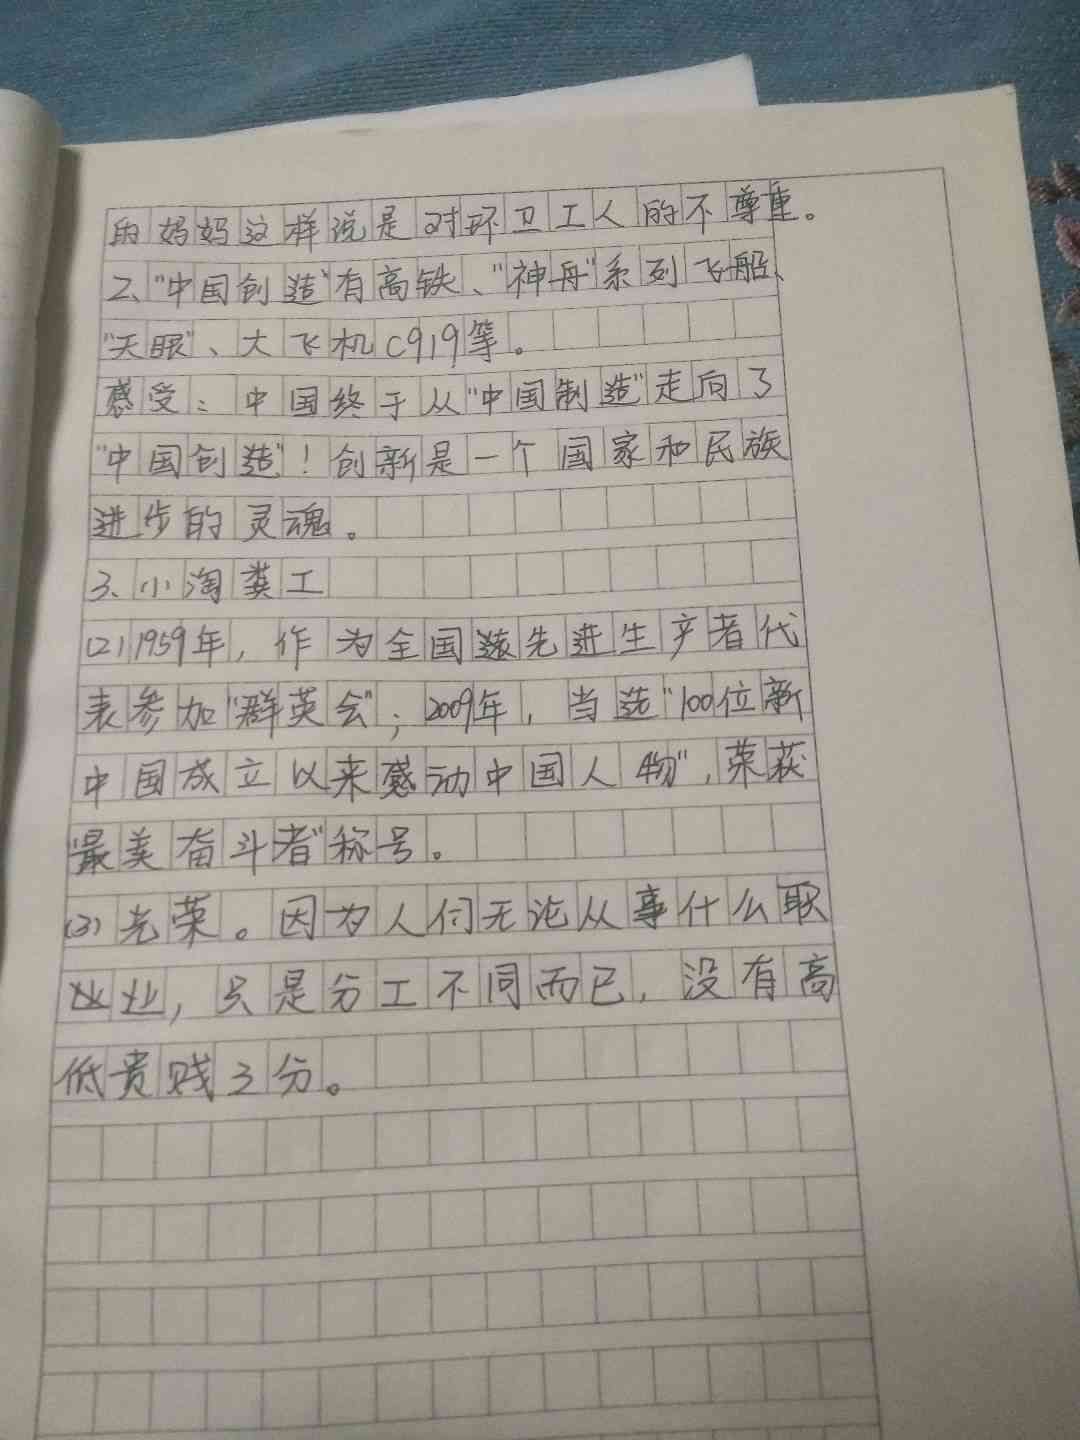 的妈妈这样说是对环卫工人的不尊重。
2、"中国创造"有高铁、"神舟"系列飞船、
"天眼"、大飞机C919等。
感受：中国终于从"中国制造"走向了
"中国创造"！创新是一个国家和民族
进步的灵魂。
3、小淘粪工
(2)1959年，作为全国先进生产者代
表参加"群英会"；2009年，当选"100位新
中国成立以来感动中国人物"，荣获
"最美奋斗者"称号。
(3)光荣。因为人们无论从事什么职
业，只是分工不同而已，没有高
低贵贱之分。